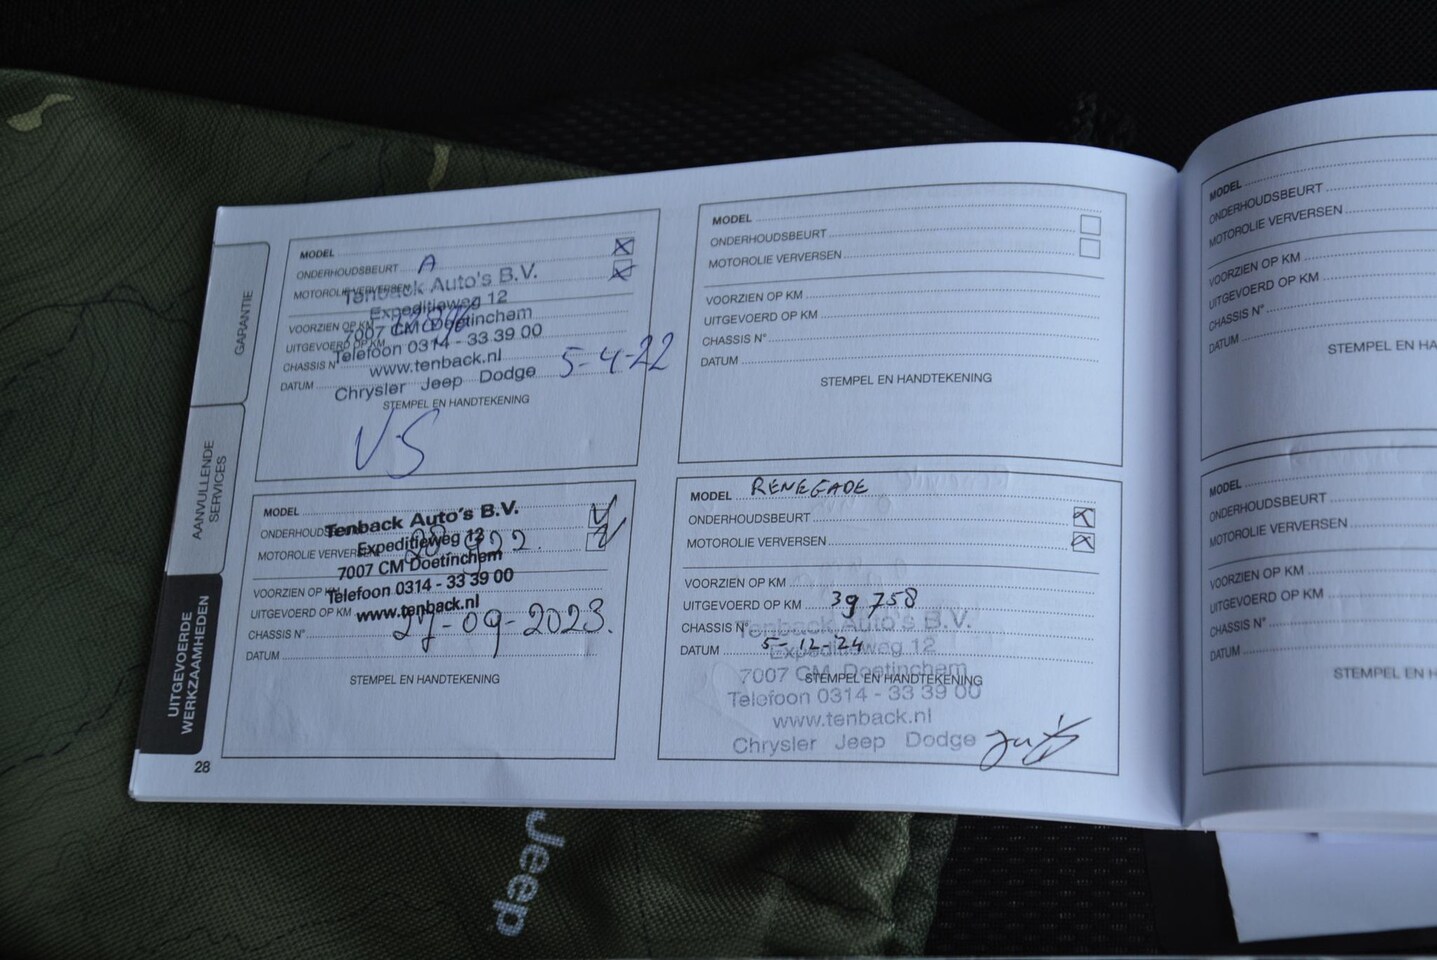 GARANTIE
AANVULLENDE SERVICES
UITGEVOERDE WERKZAAMHEDEN
28
MODEL
ONDERHOUDSBEURT A
MOTOROLIE VERVERSEN
VOORZIEN OP KM
UITGEVOERD OP KM
CHASSIS N°
DATUM 5-4-22
STEMPEL EN HANDTEKENING
Tenback Auto's B.V.
Expeditieweg 12
7007 CM Doetinchem
Telefoon 0314 - 33 39 00
www.tenback.nl
Chrysler Jeep Dodge
VS
MODEL
ONDERHOUDSBEURT
MOTOROLIE VERVERSEN
VOORZIEN OP KM
UITGEVOERD OP KM
CHASSIS N°
DATUM
STEMPEL EN HANDTEKENING
MODEL
MOTOROLIE VERVERSEN
VOORZIEN OP KM
UITGEVOERD OP KM
CHASSIS N°
DATUM
27-09-2023.
STEMPEL EN HANDTEKENING
Tenback Auto's B.V.
Expeditieweg 12
7007 CM Doetinchem
Telefoon 0314 - 33 39 00
www.tenback.nl
MODEL RENEGADE
ONDERHOUDSBEURT
MOTOROLIE VERVERSEN
VOORZIEN OP KM
UITGEVOERD OP KM 39 758
CHASSIS N°
DATUM 5-12-24
STEMPEL EN HANDTEKENING
Tenback Auto's B.V.
Expeditieweg 12
7007 CM Doetinchem
Telefoon 0314 - 33 39 00
www.tenback.nl
Chrysler Jeep Dodge
MODEL
ONDERHOUDSBEURT
MOTOROLIE VERVERSEN
VOORZIEN OP KM
UITGEVOERD OP KM
CHASSIS N°
DATUM
STEMPEL EN HA
MODEL
ONDERHOUDSBEURT
MOTOROLIE VERVERSEN
VOORZIEN OP KM
UITGEVOERD OP KM
CHASSIS N°
DATUM
STEMPEL EN H
Jeep